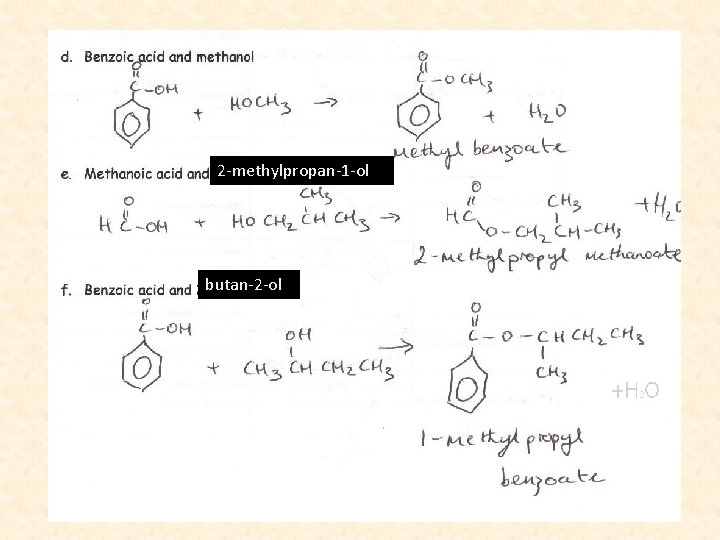 d. Benzoic acid and methanol
O
C-OH
+ HOCH3 →
O
C-OCH3
+ H2O
methyl benzoate
e. Methanoic acid and 2-methylpropan-1-ol
O
H C-OH + HO CH2 CH CH3 →
CH3
O
H C
O-CH2 CH-CH3
CH3
+H2O
2-methylpropyl methanoate
f. Benzoic acid and butan-2-ol
O
C-OH
+
OH
CH3 CH CH2 CH3 →
O
C-O-CH CH2 CH3
CH3
+H2O
1-methylpropyl
benzoate